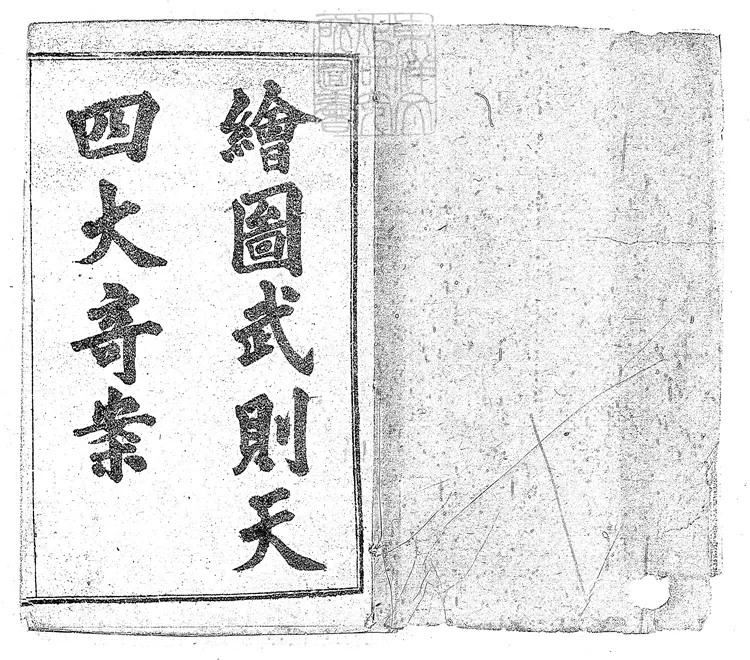 繪圖武則天
四大奇案